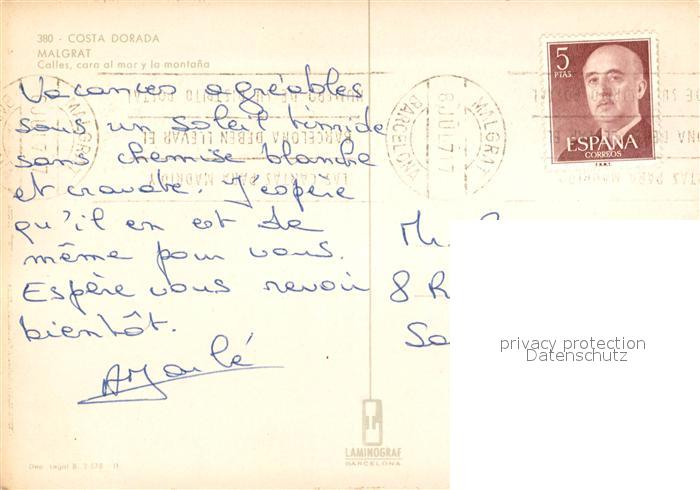 380 - COSTA DORADA
MALGRAT
Calles, cara al mar y la montaña
Vacances agréables
sous un soleil timide
sans chemise blanche
et cravate. J'espère
qu'il en est de
même pour vous.
Espère vous revoir
bientôt.
5
PTAS
ESPAÑA
CORREOS
F.N.M.T.
MALGRAT
BARCELONA
BARCELONA DEBEN LLEVAR EL
LAS CARTAS PARA MADRID Y
8
privacy protection
Datenschutz
LAMINOGRAF
BARCELONA
Dep. Legal B.